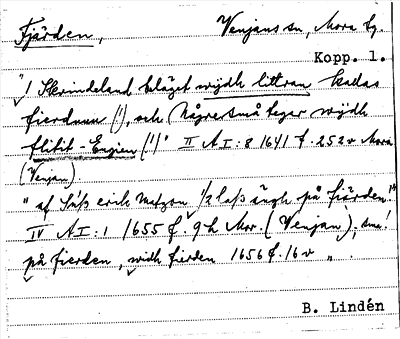 Fjärden, Venjans sn, Mora tg.
Kopp. 1.
"1 Skrindeland beläget wijdh littran kallas
fierdnnn (!), och Någre små teger wijdh
flibik-Engien (!)" II A I:8 1641 f. 252v Mora
(Venjan)
"af erik 1/2 lass ängh på fiärden."
IV A I:1 1655 f. 9h Mor. (Venjan); sms!
på fierden, widh fierden 1656 f. 16v " .
B. Lindén